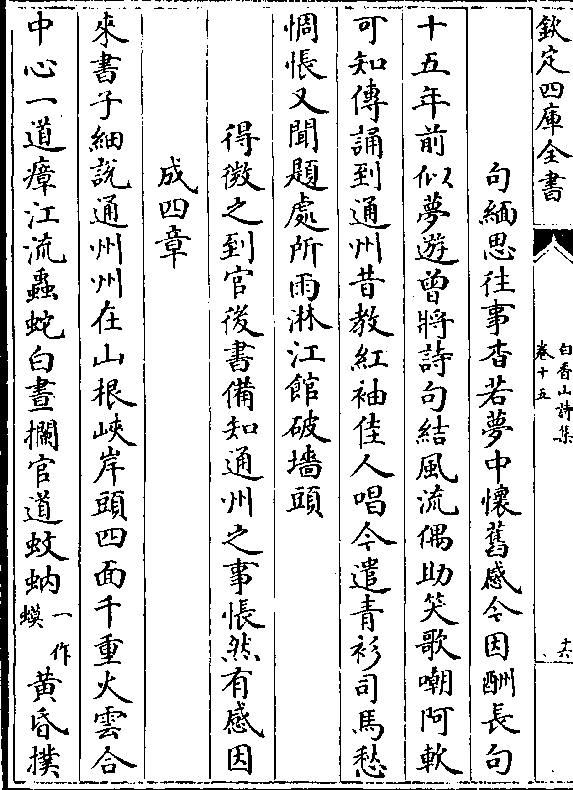 欽定四庫全書
白香山詩集
卷十五
十六
句緬思往事杳若夢中懷舊感今因酬長句
十五年前似夢遊曾將詩句結風流偶助笑歌嘲阿軟
可知傳誦到通州昔教紅袖佳人唱今遣青衫司馬愁
惆悵又聞題處所雨淋江館破墻頭
得微之到官後書備知通州之事悵然有感因
成四章
來書子細說通州州在山根峽岸頭四面千重火雲合
中心一道瘴江流蟲蛇白晝攔官道蚊蚋一作蟆黃昏撲